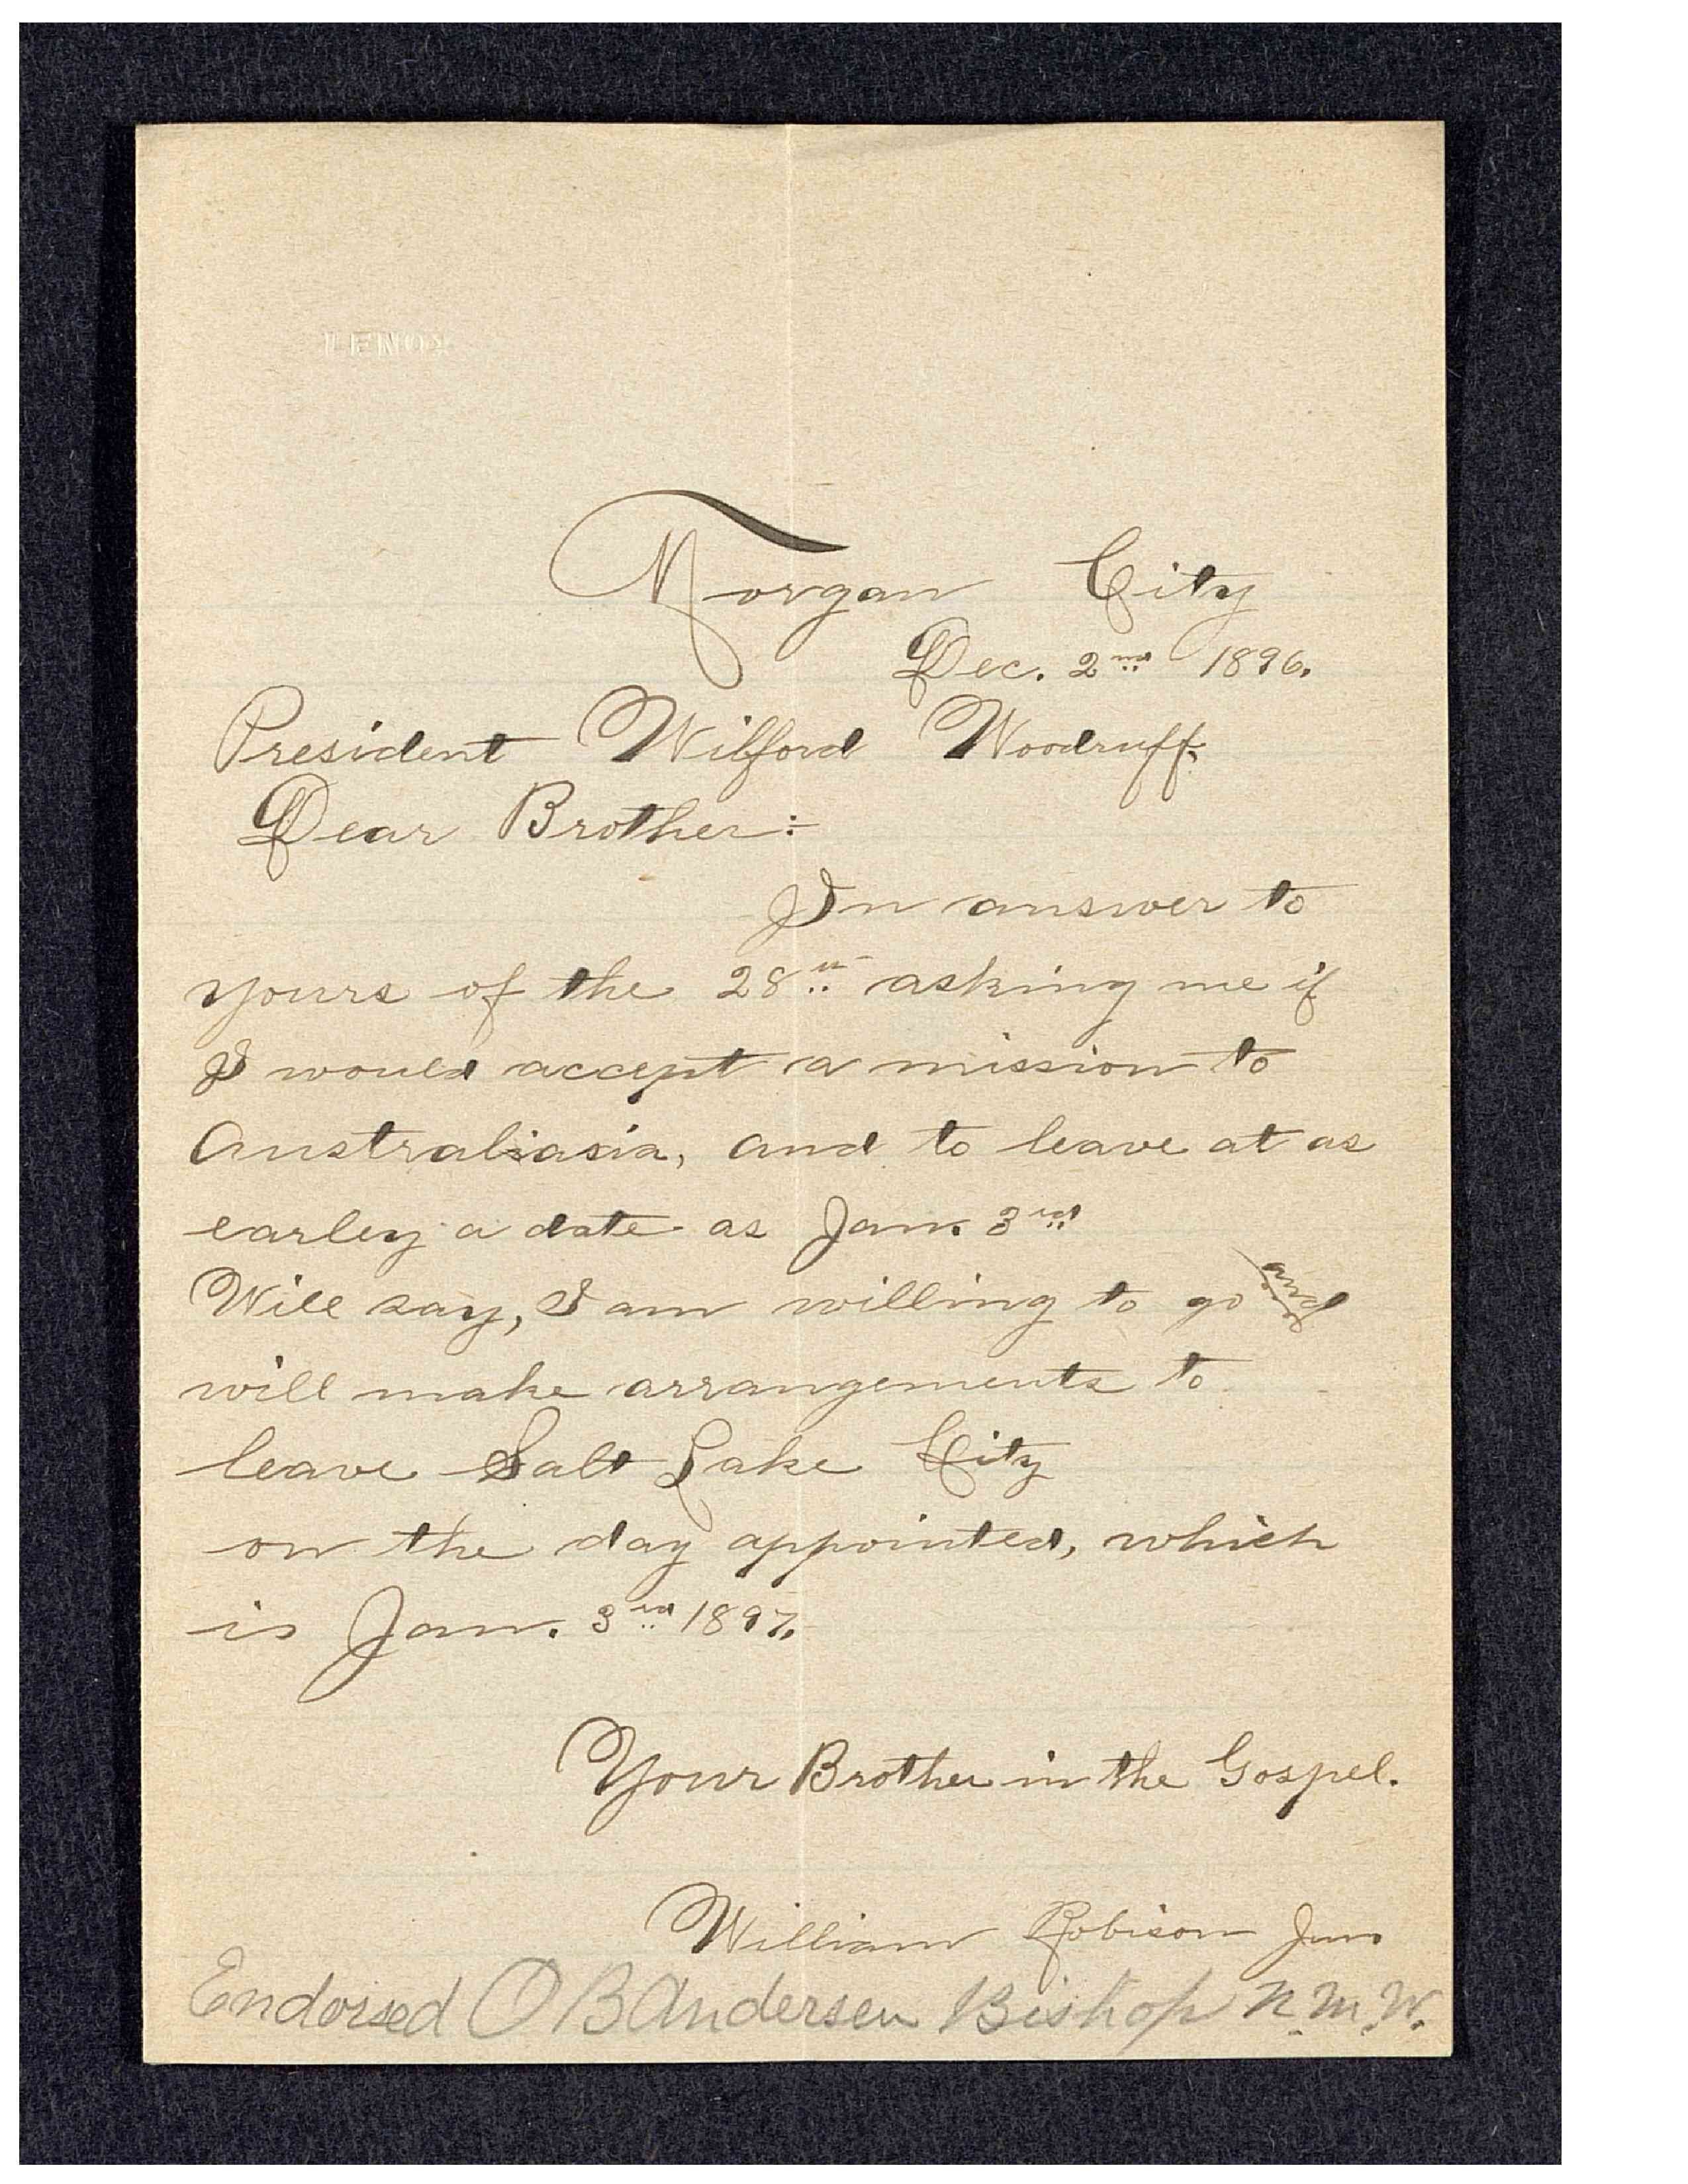 LENOX
Morgan City
Dec. 2nd 1896.
President Wilford Woodruff.
Dear Brother:
In answer to
yours of the 28th asking me if
I would accept a mission to
Australiasia, and to leave at as
earley a date as Jan. 3rd
Will say, I am willing to go and
will make arrangements to
leave Salt Lake City
on the day appointed, which
is Jan. 3rd 1897.
Your Brother in the Gospel.
William Robison Jun
Endorsed O B Andersen Bishop N. M. W.